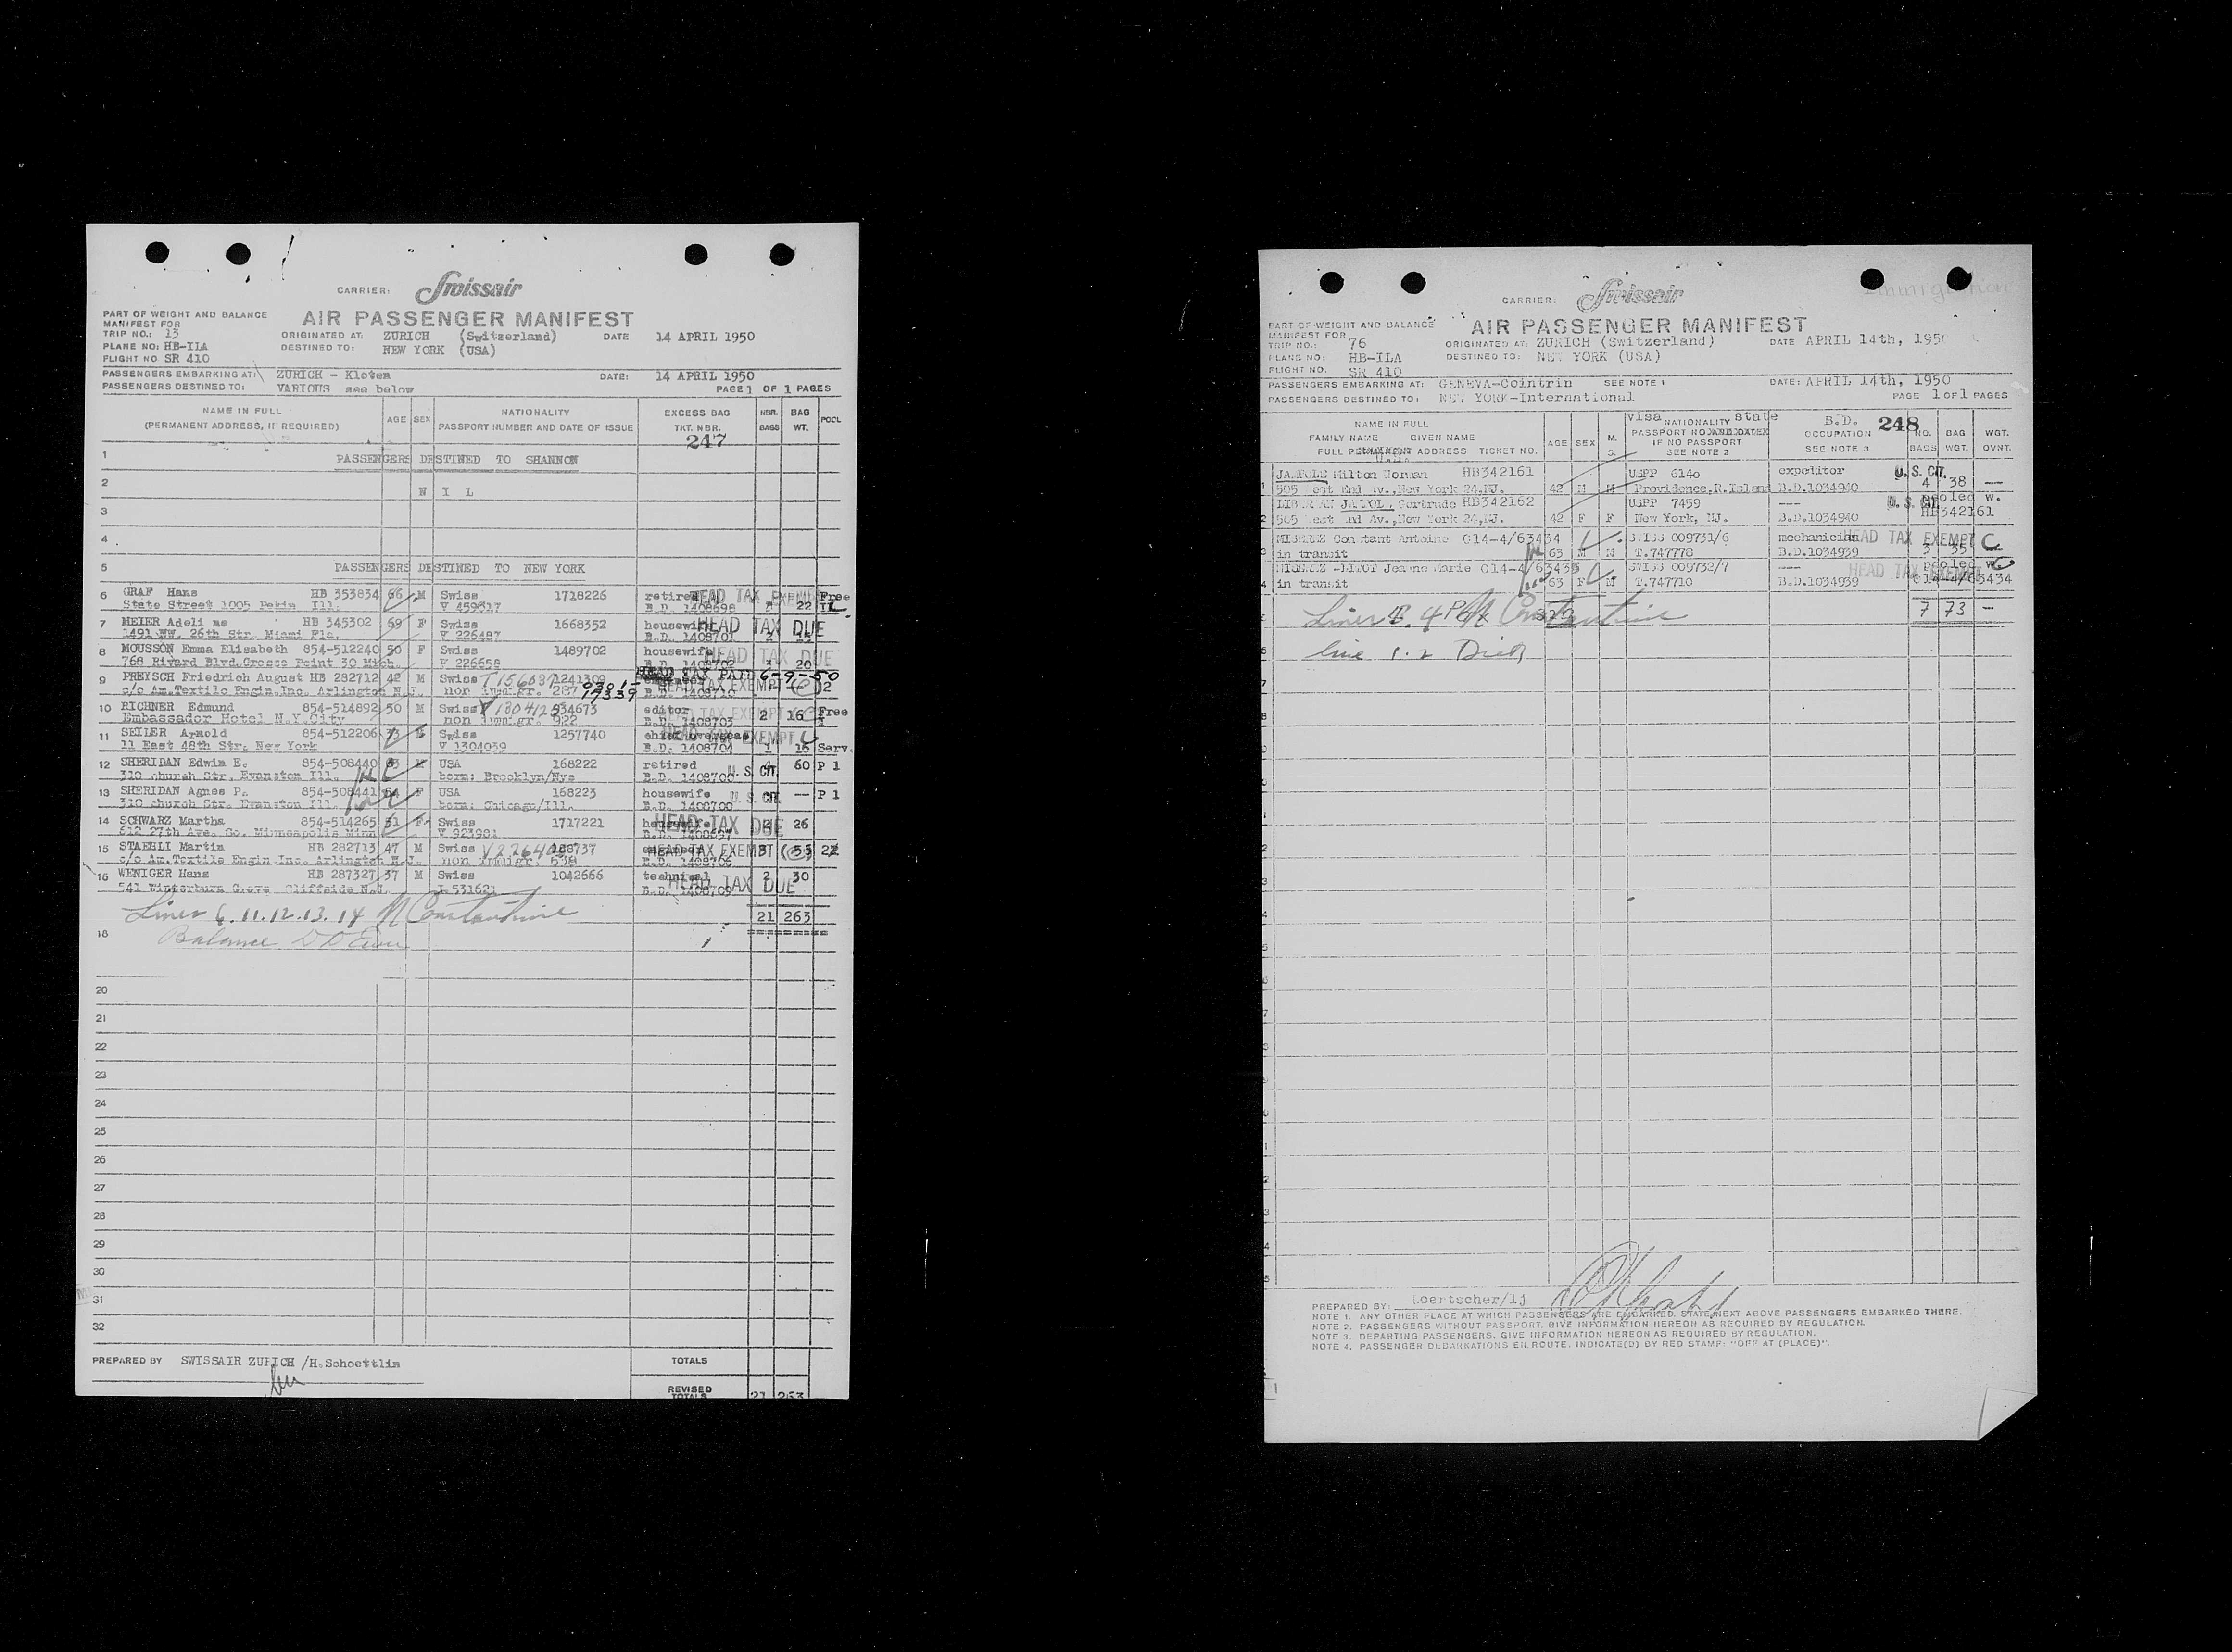 CARRIER: Swissair
PART OF WEIGHT AND BALANCE
MANIFEST FOR
AIR PASSENGER MANIFEST
TRIP NO.: 13
ORIGINATED AT: ZURICH (Switzerland) DATE 14 APRIL 1950
PLANE NO: HB-ILA
DESTINED TO: NEW YORK (USA)
FLIGHT NO SR 410
PASSENGERS EMBARKING AT: ZURICH - Kloten DATE: 14 APRIL 1950
PASSENGERS DESTINED TO: VARIOUS see below PAGE 1 OF 1 PAGES
NAME IN FULL
(PERMANENT ADDRESS, IF REQUIRED)
AGE SEX
NATIONALITY
PASSPORT NUMBER AND DATE OF ISSUE
EXCESS BAG
TKT. NBR.
NBR. BAGS
BAG WT.
POOL
247
1 PASSENGERS DESTINED TO SHANNON
2 N I L
3
4
5 PASSENGERS DESTINED TO NEW YORK
6 GRAF Hans HB 353834 66 M Swiss 1718226 retired HEAD TAX EXEMPT Free
State Street 1005 Pekin Ill. V 459517 B.D. 1408698 22
7 MEIER Adeli HB 345302 69 F Swiss 1668352 housewife HEAD TAX DUE
1491 NW. 26th Str. Miami Fla. V 226487 B.D. 1408701
8 MOUSSON Emma Elisabeth 854-512240 50 F Swiss 1489702 housewife HEAD TAX DUE
768 Rivard Blvd.Grosse Point 30 Mich. V 226658 B.D. 1408702 3 20
9 PREYSCH Friedrich August HB 282712 42 M Swiss 1241309 HEAD TAX PAID 6-9-50
c/o Am.Textile Engin.Inc. Arlington N.J. non immigr. 287 HEAD TAX EXEMPT B.D. 1408710 2
10 RICHNER Edmund 854-514892 50 M Swiss 934673 editor 2 16 Free
Embassador Hotel N.Y.City non immigr. 922 B.D. 1408703
11 SEILER Arnold 854-512206 Swiss 1257740 chief overseas HEAD TAX EXEMPT
11 East 48th Str. New York V 1304039 B.D. 1408704 1 16 Serv.
12 SHERIDAN Edwin E. 854-508440 USA 168222 retired U. S. CIT. 60 P 1
310 church Str. Evanston Ill. born: Brooklyn/Nyc B.D. 1408700
13 SHERIDAN Agnes P. 854-508441 64 F USA 168223 housewife U. S. CIT. -- P 1
310 church Str. Evanston Ill. born: Chicago/Ill. B.D. 1408700
14 SCHWARZ Martha 854-514265 31 F Swiss 1717221 HEAD TAX DUE 2 26
612 27th Ave. So. Minneapolis Minn V 923901 B.D. 1408697
15 STAEHLI Martin HB 282713 47 M Swiss HEAD TAX EXEMPT 3 55
c/o Am.Textile Engin Inc. Arlington N.J. non immigr. 538 B.D. 1408706
16 WENIGER Hans HB 287327 37 M Swiss 1042666 technical 2 30
541 Winterburn Grove Cliffside N.J. 531621 B.D. 1408709 HEAD TAX DUE
Lines 6.11.12.13.14 N Constantine 21 263
18 Balance
20
21
22
23
24
25
26
27
28
29
30
31
32
PREPARED BY SWISSAIR ZURICH /H.Schoettlin
TOTALS
REVISED TOTALS 21 263
CARRIER: Swissair
PART OF WEIGHT AND BALANCE
MANIFEST FOR
AIR PASSENGER MANIFEST
TRIP NO.: 76
ORIGINATED AT: ZURICH (Switzerland) DATE APRIL 14th, 1950
PLANE NO: HB-ILA
DESTINED TO: NEW YORK (USA)
FLIGHT NO. SR 410
PASSENGERS EMBARKING AT: GENEVA-Cointrin SEE NOTE 1 DATE: APRIL 14th, 1950
PASSENGERS DESTINED TO: NEW YORK-International PAGE 1 OF 1 PAGES
NAME IN FULL
FAMILY NAME GIVEN NAME
FULL PERMANENT ADDRESS TICKET NO.
AGE SEX M. S.
visa NATIONALITY state
PASSPORT NO
IF NO PASSPORT
SEE NOTE 2
B.D.
OCCUPATION
SEE NOTE 3
248
NO. BAGS
BAG WGT.
WGT. OVNT.
Milton Norman HB342161 USPP 6140 expeditor U. S. CIT.
1 505 West End Av.,New York 24,NJ. 42 M M Providence,R.Island B.D.1034940 4 38 --
Gertrude HB342162 USPP 7459 --- U. S. CIT. pooled w.
2 505 West End Av.,New York 24,NJ. 42 F F New York, NJ. B.D.1034940 HB342161
Constant Antoine 014-4/63434 SWISS 009731/6 mechanician HEAD TAX EXEMPT
3 in transit 63 M M T.747778 B.D.1034939 3 35 --
Jeanne Marie 014-4/63435 SWISS 009732/7 --- HEAD TAX EXEMPT pooled w.
4 in transit 63 F M T.747710 B.D.1034939 014-4/63434
N Constantine 7 73 --
line 1.2
PREPARED BY: Loertscher/lj
NOTE 1. ANY OTHER PLACE AT WHICH PASSENGERS ARE EMBARKED, STATE NEXT ABOVE PASSENGERS EMBARKED THERE.
NOTE 2. PASSENGERS WITHOUT PASSPORT, GIVE INFORMATION HEREON AS REQUIRED BY REGULATION.
NOTE 3. DEPARTING PASSENGERS, GIVE INFORMATION HEREON AS REQUIRED BY REGULATION.
NOTE 4. PASSENGER DEBARKATIONS EN ROUTE, INDICATE(D) BY RED STAMP: "OFF AT (PLACE)".